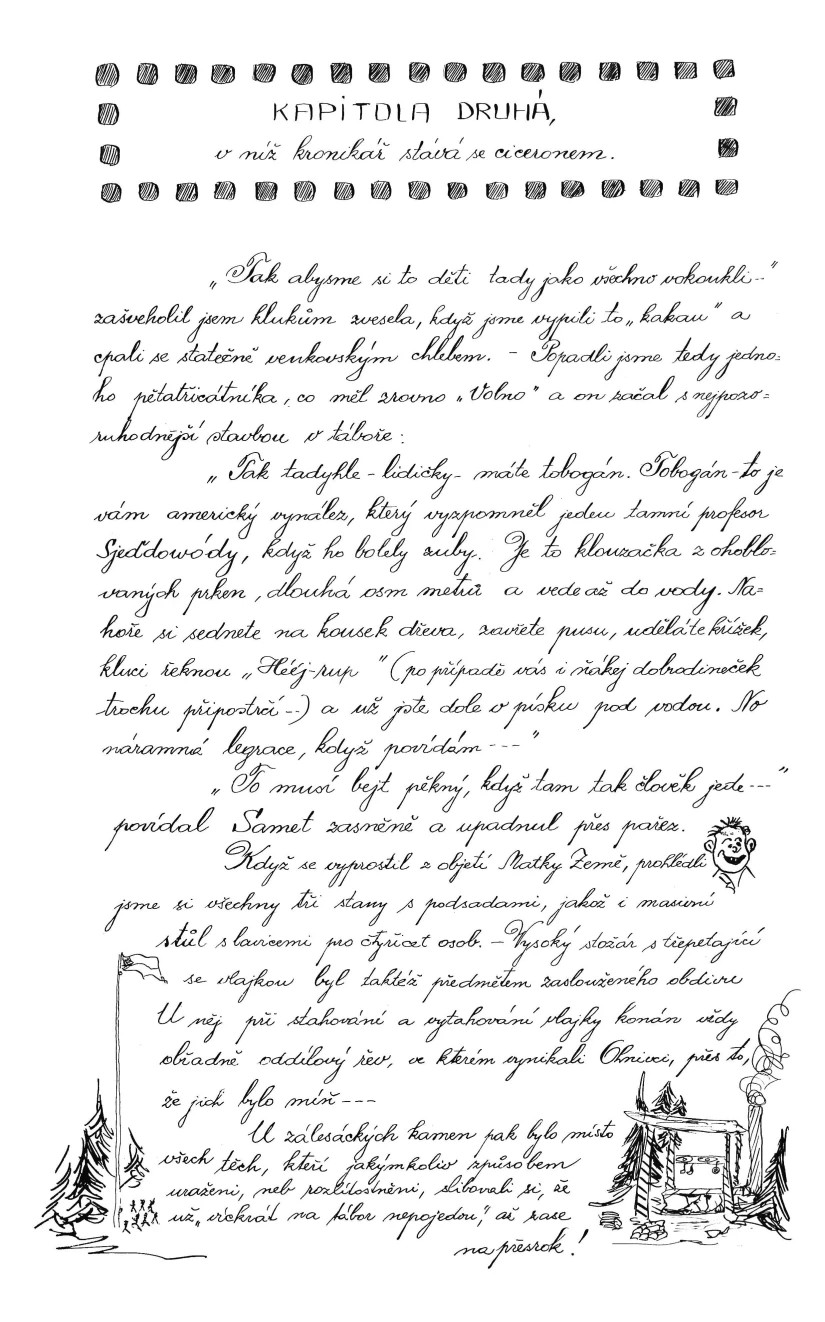 KAPITOLA DRUHÁ,
v níž kronikář stává se ciceronem.
„Tak abysme si to děti tady jako všechno vokoukli--"
zašveholil jsem klukům zvesela, když jsme vypili to „kakau" a
cpali se statečně venkovským chlebem. - Popadli jsme tedy jedno=
ho pětatřicátníka, co měl zrovno „Volno" a on začal s nejpozo=
ruhodnější stavbou v táboře:
„Tak tadyhle - lidičky - máte tobogán. Tobogán - to je
vám americký vynález, který vyzpomněl jeden tamní profesor
Sjeďdowódy, když ho bolely zuby. Je to klouzačka z ohoblo=
vaných prken, dlouhá osm metrů a vede až do vody. Na=
hoře si sednete na kousek dřeva, zavřete pusu, uděláte křížek,
kluci řeknou „Hééj-rup" (po případě vás i ňákej dobrodineček
trochu připostrčí --) a už jste dole v písku pod vodou. No
náramná legrace, když povídám ---"
„To musí bejt pěkný, když tam tak člověk jede ---"
povídal Samet zasněně a upadnul přes pařez.
Když se vyprostil z objetí Matky Země, prohlédli
jsme si všechny tři stany s podsadami, jakož i masivní
stůl s lavicemi pro čtyřicet osob. - Vysoký stožár s třepetající
se vlajkou byl taktéž předmětem zaslouženého obdivu
U něj při stahování a vytahování vlajky konán vždy
obřadně oddílový řev, ve kterém vynikali Ohnivci, přes to,
že jich bylo míň ---
U zálesáckých kamen pak bylo místo
všech těch, kteří jakýmkoliv způsobem
uraženi, neb rozlítostněni, slibovali si, že
už „víckrát na tábor nepojedou", až zase
na přesrok!